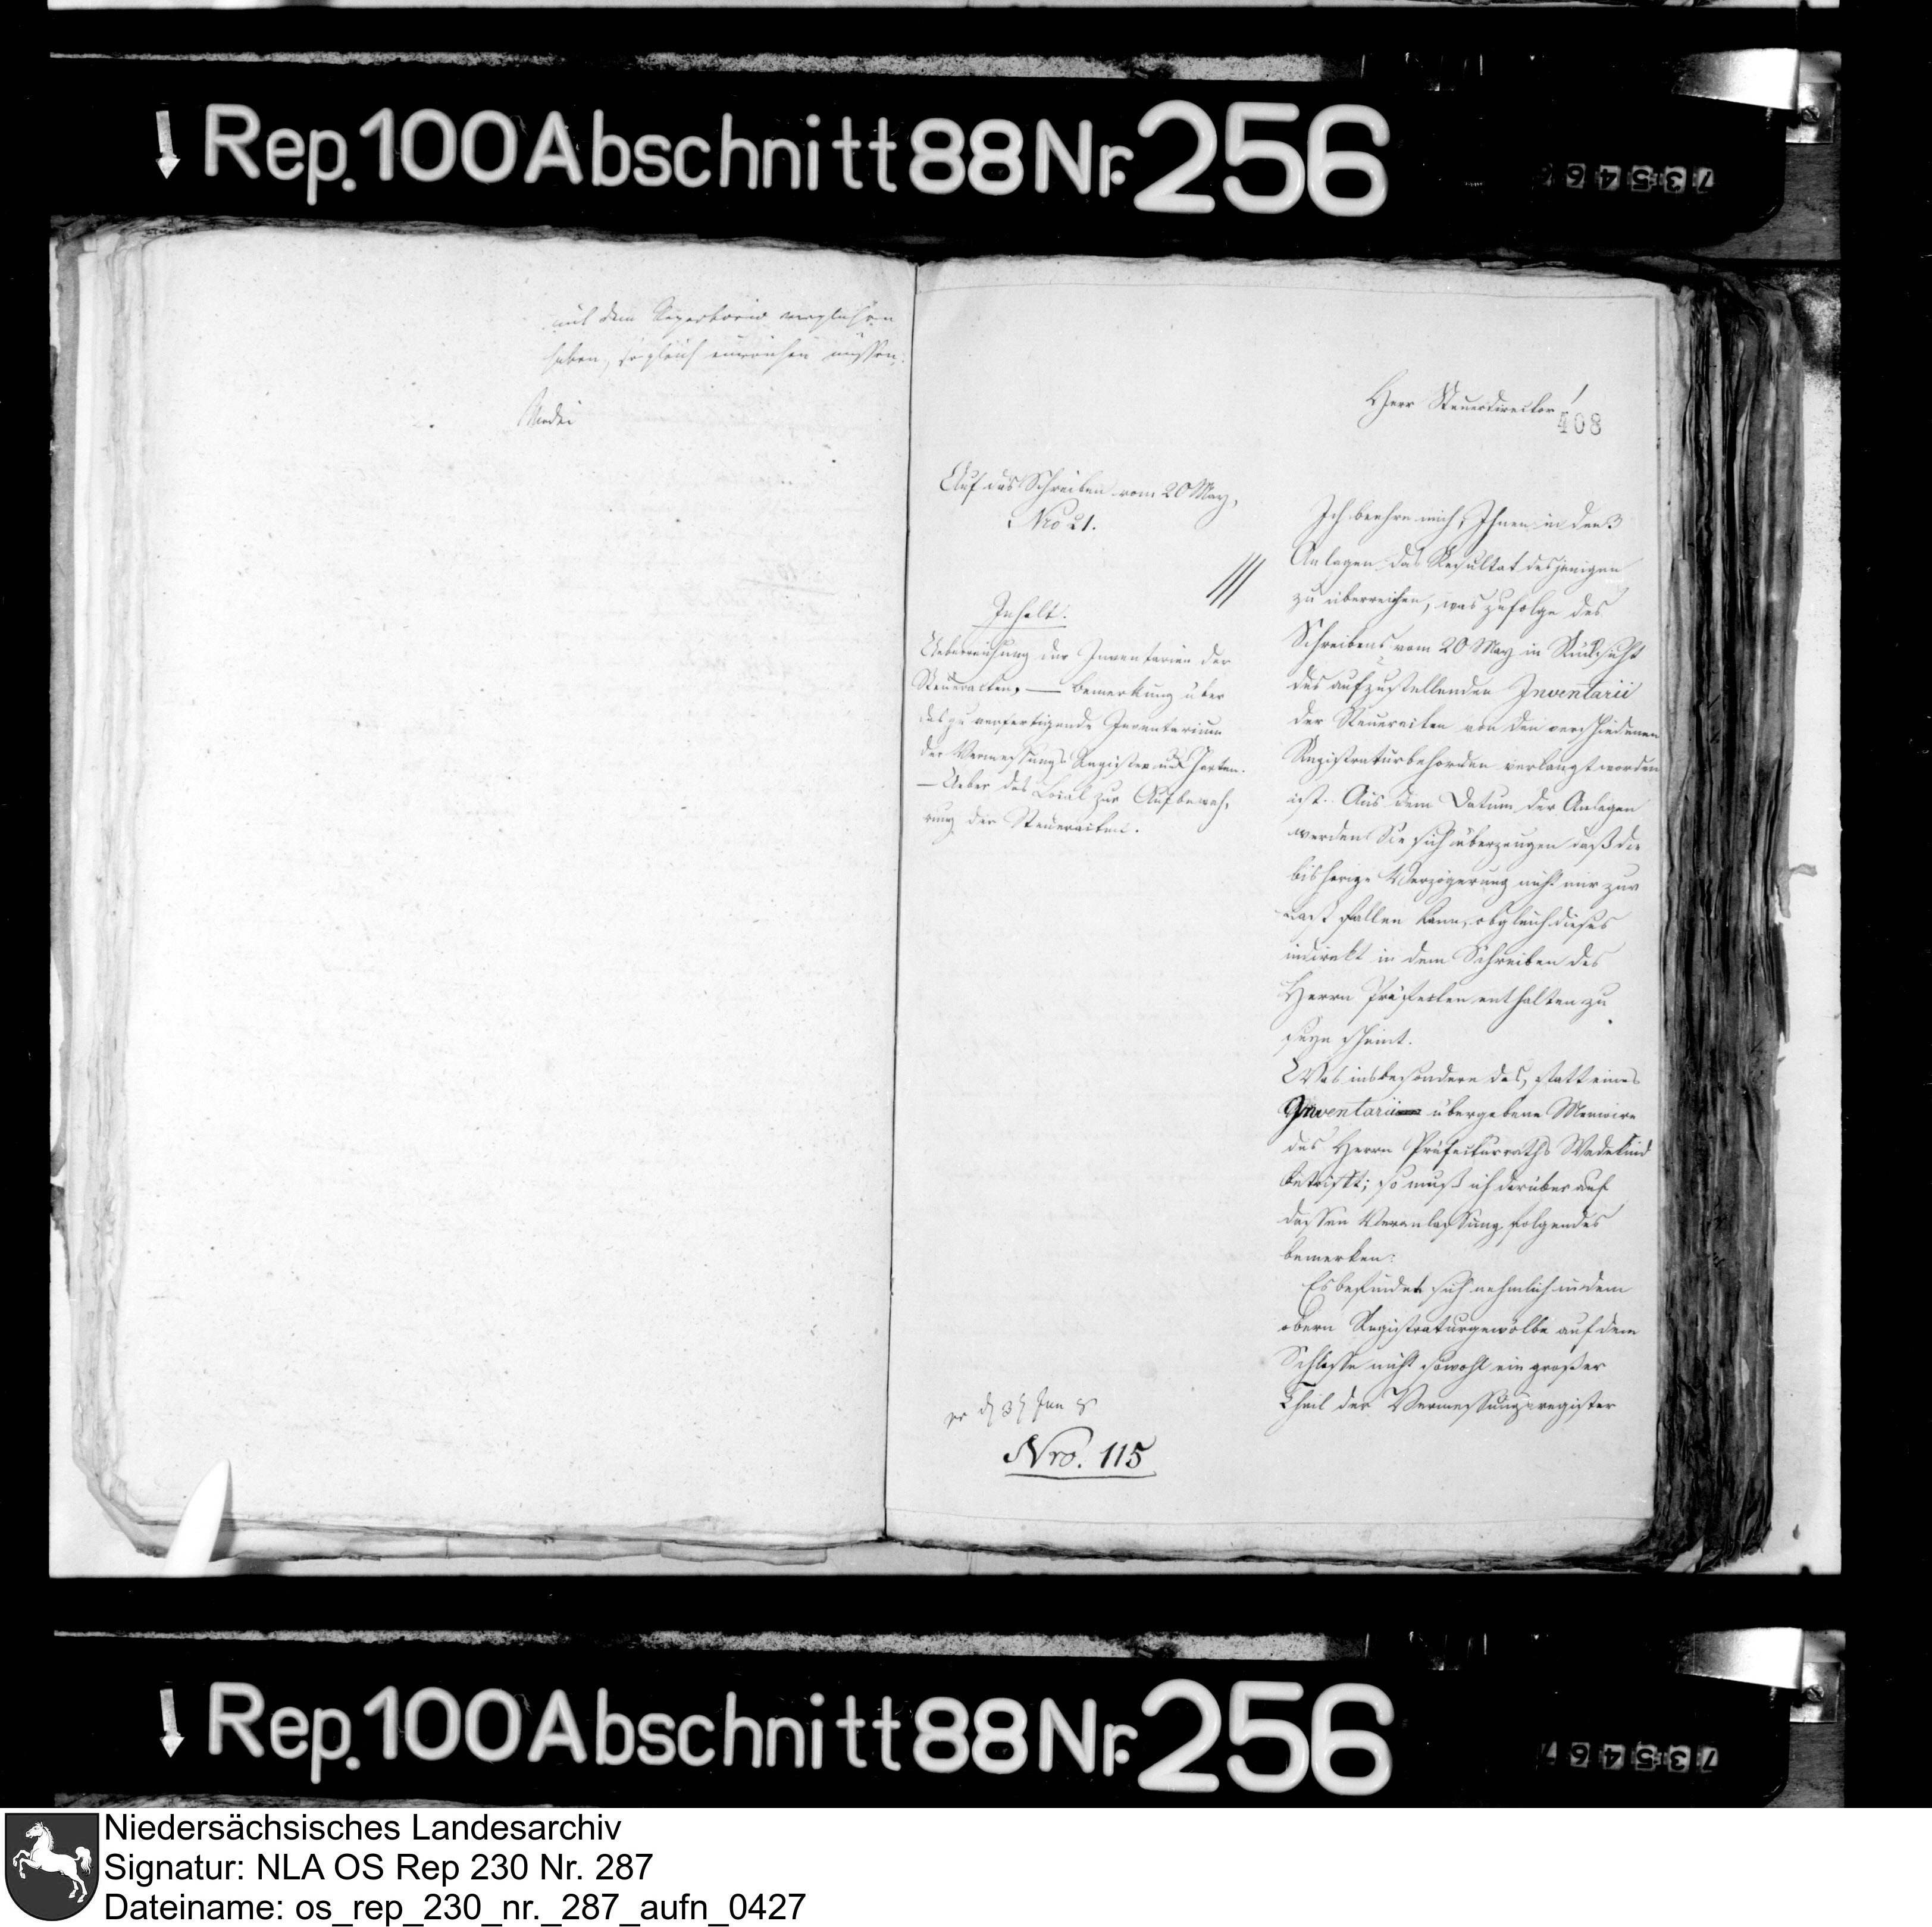 Rep. 100 Abschnitt 88 Nr. 256
735467
mit dem Repertorio verglichen
haben, sogleich einreichen müssen.
Herr Steuerdirector!
408
Auf das Schreiben vom 20 May,
Nro 21.
Inhalt.
Ueberreichung der Inventarien der
Steueracten, — Bemerkung über
das zu verfertigende Inventarium
der Vermessungs Register und Charten.
— Ueber das Local zur Aufbewah,
rung der Steueracten.
Ich beehre mich, Ihnen in den 3
Anlagen das Resultat desjenigen
zu überreichen, was zufolge des
Schreibens vom 20 May in Rücksicht
des aufzustellenden Inventarii
der Steueracten von den verschiedenen
Registraturbehorden verlangt worden
ist. Aus dem Datum der Anlagen
werden Sie sich überzeugen daß die
bisherige Verzögerung nicht mir zur
Last fallen kann, obgleich dieses
indirekt in dem Schreiben des
Herrn Präfecten enthalten zu
seyn scheint.
Was insbesondere das, statt eines
Inventarii übergebene Memoire
des Herrn Präfecturraths Wedekind
betrifft; so muß ich darüber auf
dessen Veranlassung folgendes
bemerken:
Es befindet sich nehmlich in dem
obern Registraturgewölbe auf dem
Schlosse nicht sowohl ein großer
Theil der Vermessungsregister
Nro. 115
Rep. 100 Abschnitt 88 Nr. 256
735467
Niedersächsisches Landesarchiv
Signatur: NLA OS Rep 230 Nr. 287
Dateiname: os_rep_230_nr._287_aufn_0427